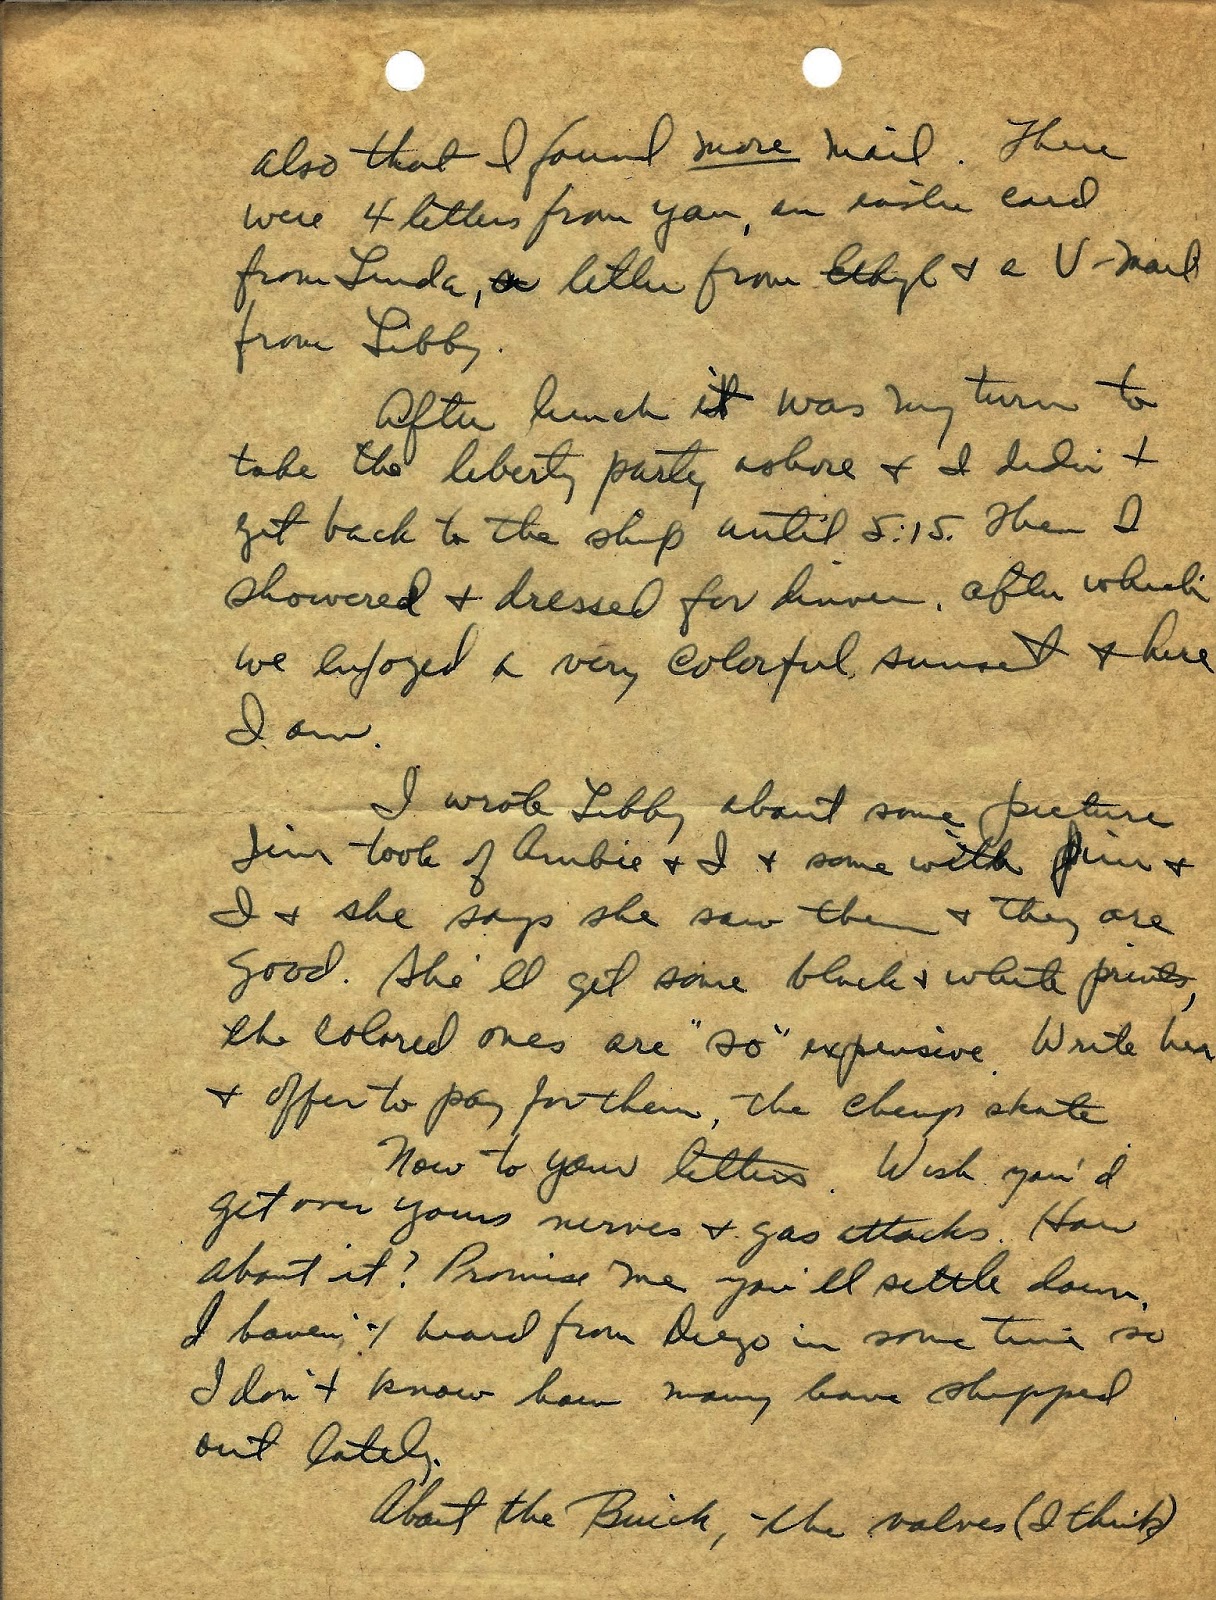 also that I found more mail. There
were 4 letters from you, an easter card
from Linda, a letter from Ethyl & a V-Mail
from Libby.
After lunch it was my turn to
take the liberty party ashore & I didn't
get back to the ship until 5:15. Then I
showered & dressed for dinner, after which
we enjoyed a very colorful sunset & here
I am.
I wrote Libby about some picture
Jim took of Arubie & I & some with Jim &
I & she says she saw them & they are
good. She'll get some black & white prints,
the colored ones are "so" expensive. Write her
& offer to pay for them, the cheap skate
Now to your letters. Wish you'd
get over yours nerves & gas attacks. How
about it? Promise me you'll settle down.
I haven't heard from Diego in some time so
I don't know how many have shipped
out lately.
About the Buick, - the valves (I think)